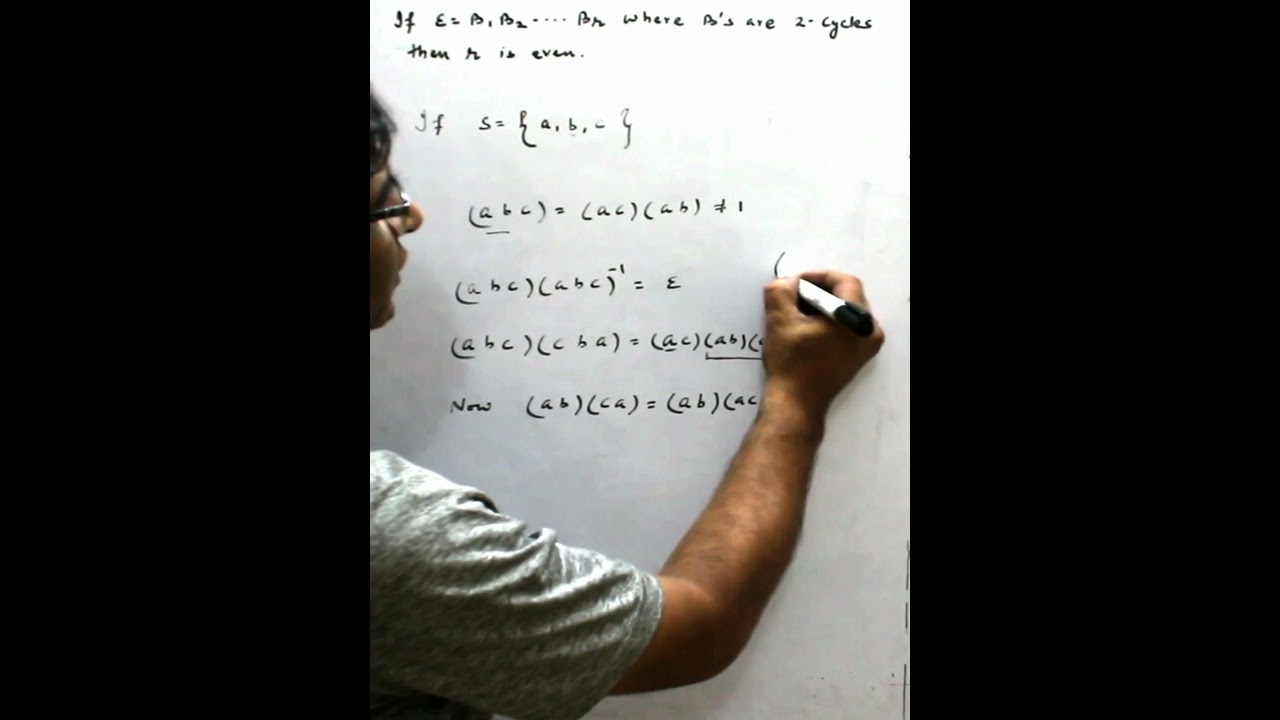 If ε = β₁ β₂ ---- βr where β's are 2-cycles
then r is even.
If S = { a, b, c }
(a b c) = (a c) (a b) ≠ 1
(a b c) (a b c)⁻¹ = ε
(
(a b c) (c b a) = (a c) (a b) (
Now (a b) (c a) = (a b) (a c